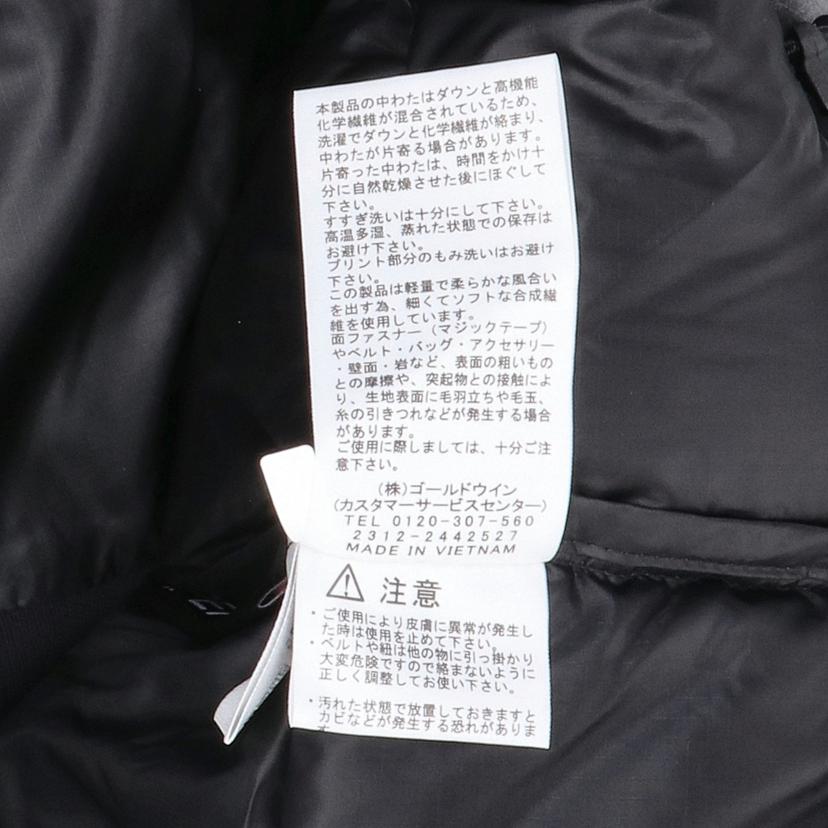 本製品の中わたはダウンと高機能
化学繊維が混合されているため、
洗濯でダウンと化学繊維が絡まり、
中わたが片寄る場合があります。
片寄った中わたは、時間をかけ十
分に自然乾燥させた後にほぐして
下さい。
すすぎ洗いは十分にして下さい。
高温多湿、蒸れた状態での保存は
お避け下さい。
プリント部分のもみ洗いはお避け
下さい。
この製品は軽量で柔らかな風合い
を出す為、細くてソフトな合成繊
維を使用しています。
面ファスナー(マジックテープ)
やベルト・バッグ・アクセサリー
・壁面・岩など、表面の粗いもの
との摩擦や、突起物との接触によ
り、生地表面に毛羽立ちや毛玉、
糸の引きつれなどが発生する場合
があります。
ご使用に際しましては、十分ご注
意下さい。
(株)ゴールドウイン
(カスタマーサービスセンター)
TEL 0120-307-560
2312-2442527
MADE IN VIETNAM
注意
・ご使用により皮膚に異常が発生し
た時は使用を止めて下さい。
・ベルトや紐は他の物に引っ掛かり
大変危険ですので絡まないように
正しく調整してお使い下さい。
・汚れた状態で放置しておきますと
カビなどが発生する恐れがありま